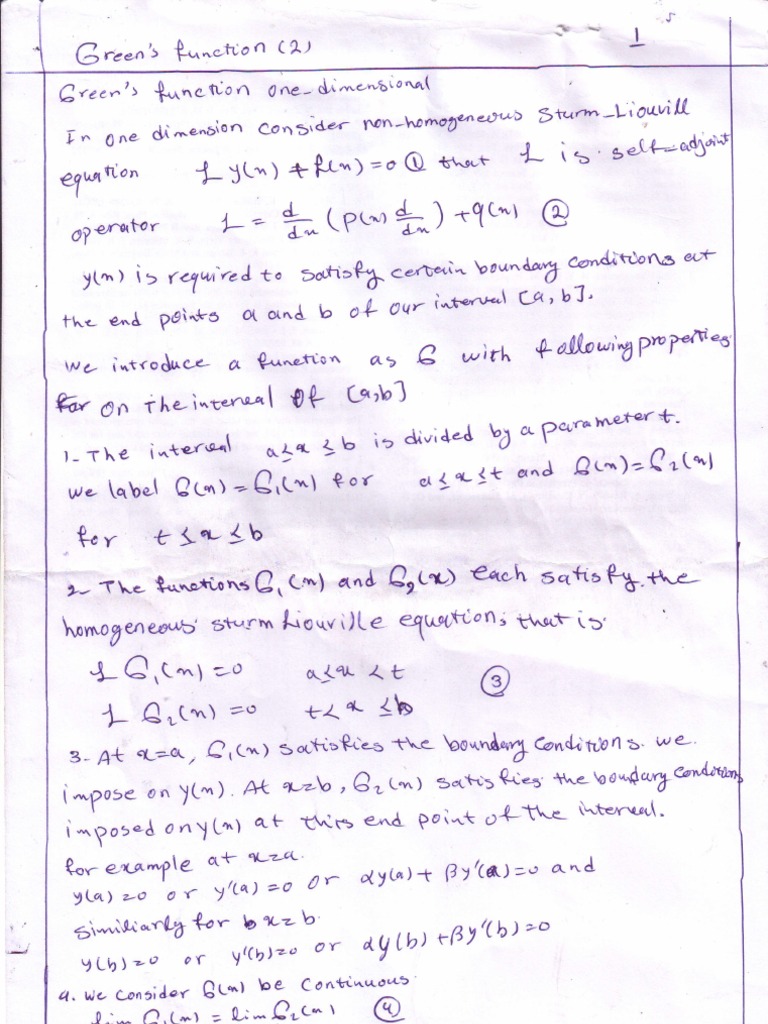 Green's function (2) 1
Green's function one-dimensional
In one dimension consider non-homogeneous Sturm-Liouvill
equation L y(x) + f(x) = 0 ① that L is self-adjoint
operator L = d/dx (p(x) d/dx) + q(x) ②
y(x) is required to satisfy certain boundary conditions at
the end points a and b of our interval [a, b].
We introduce a function as G with following properties
on the interval of [a,b]
1- The interval a ≤ x ≤ b is divided by a parameter t.
we label G(x) = G₁(x) for a ≤ x ≤ t and G(x) = G₂(x)
for t ≤ x ≤ b
2- The functions G₁(x) and G₂(x) each satisfy the
homogeneous Sturm Liouville equation, that is
L G₁(x) = 0 a ≤ x < t ③
L G₂(x) = 0 t < x ≤ b
3- At x=a, G₁(x) satisfies the boundary conditions we
impose on y(x). At x=b, G₂(x) satisfies the boundary conditions
imposed on y(x) at this end point of the interval.
for example at x=a
y(a) = 0 or y'(a) = 0 or αy(a) + βy'(a) = 0 and
similiarly for x=b
y(b) = 0 or y'(b) = 0 or αy(b) + βy'(b) = 0
4. We consider G(x) be continuous
lim G₁(x) = lim G₂(x) ④